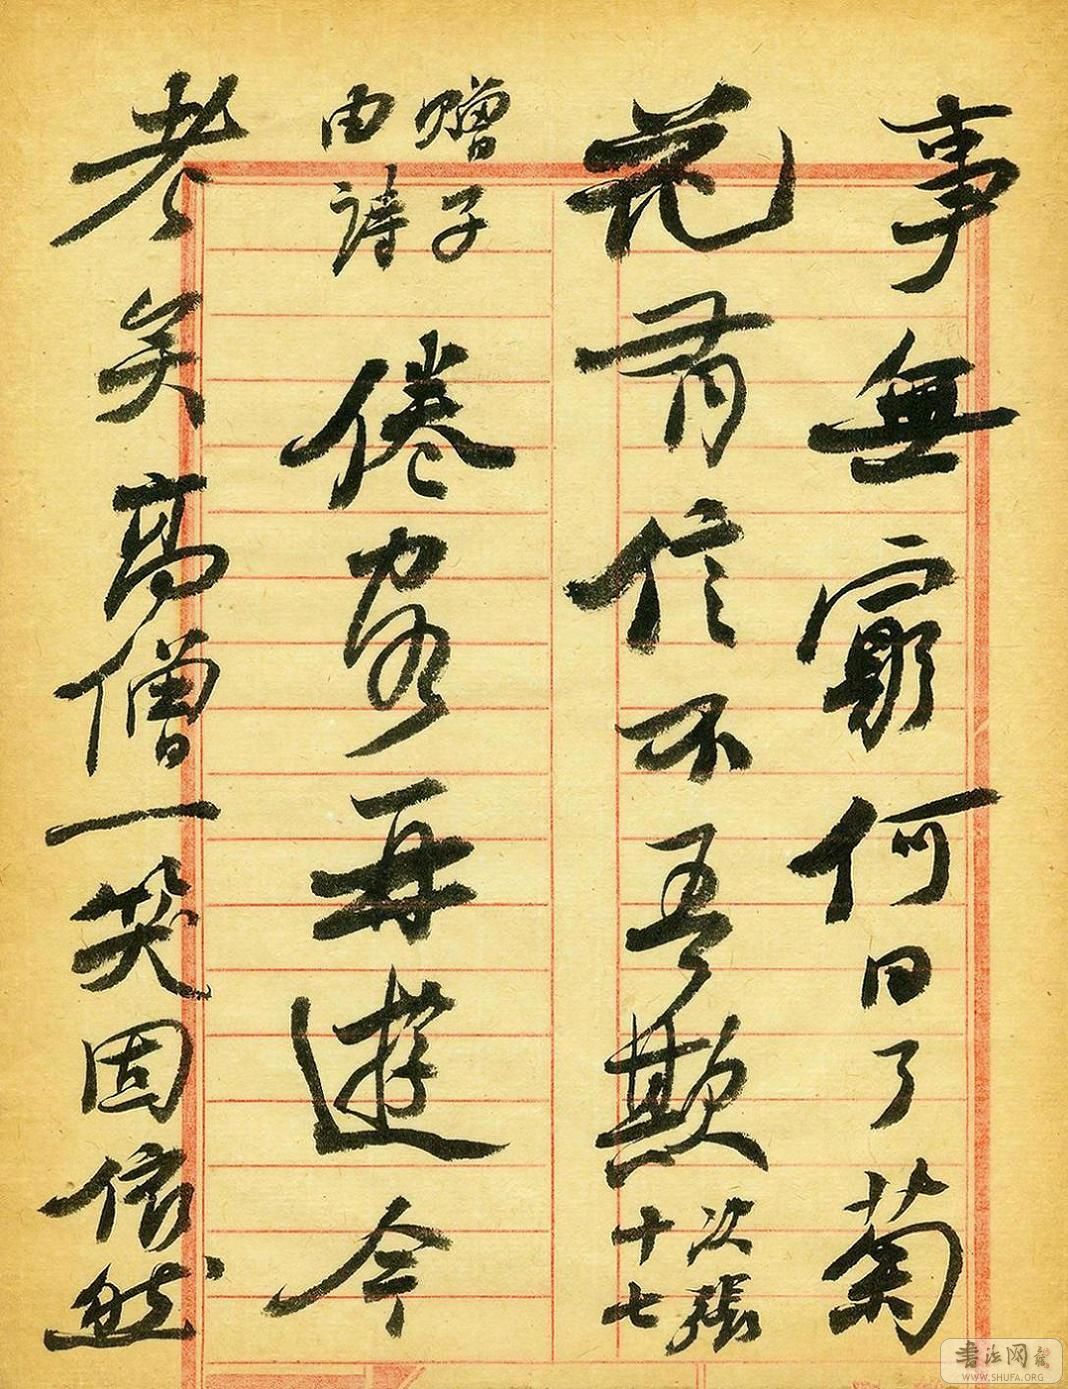 事無窮何日了菊
花有信不吾欺
次張
十七
贈子
由詩
倦客再遊今
老矣高僧一笑固依然
書法网
WWW.SHUFA.ORG